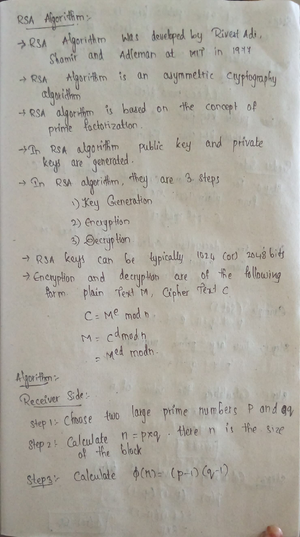 RSA Algorithm:-
→ RSA Algorithm was developed by Rivest Adi,
Shamir and Adleman at MIT in 1977
→ RSA Algorithm is an asymmetric Cryptography
algorithm
→ RSA algorithm is based on the concept of
prime factorization.
→ In RSA algorithm public key and private
keys are generated.
→ In RSA algorithm, they are 3 steps
1) Key Generation
2) Encryption
3) Decryption
→ RSA keys can be typically 1024 (or) 2048 bits
→ Encryption and decryption are of the following
form plain Text M, Cipher Text C
C = Mᵉ mod n.
M = Cᵈ mod n
= Mᵉᵈ mod n.
Algorithm:-
Receiver Side:-
Step 1:- Choose two large prime numbers P and q
Step 2:- Calculate n = p×q. Here n is the size
of the block
Step 3:- Calculate ϕ(n) = (p-1) (q-1)